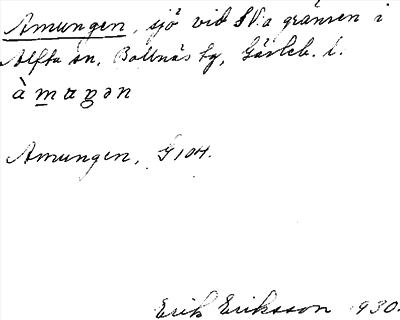 Amungen, sjö vid SV.a gränsen i
Alfta sn, Bollnäs tg, Gävleb. l.
à m ɑ ŋ ə n
Amungen, G 104.
Erik Eriksson 1930.